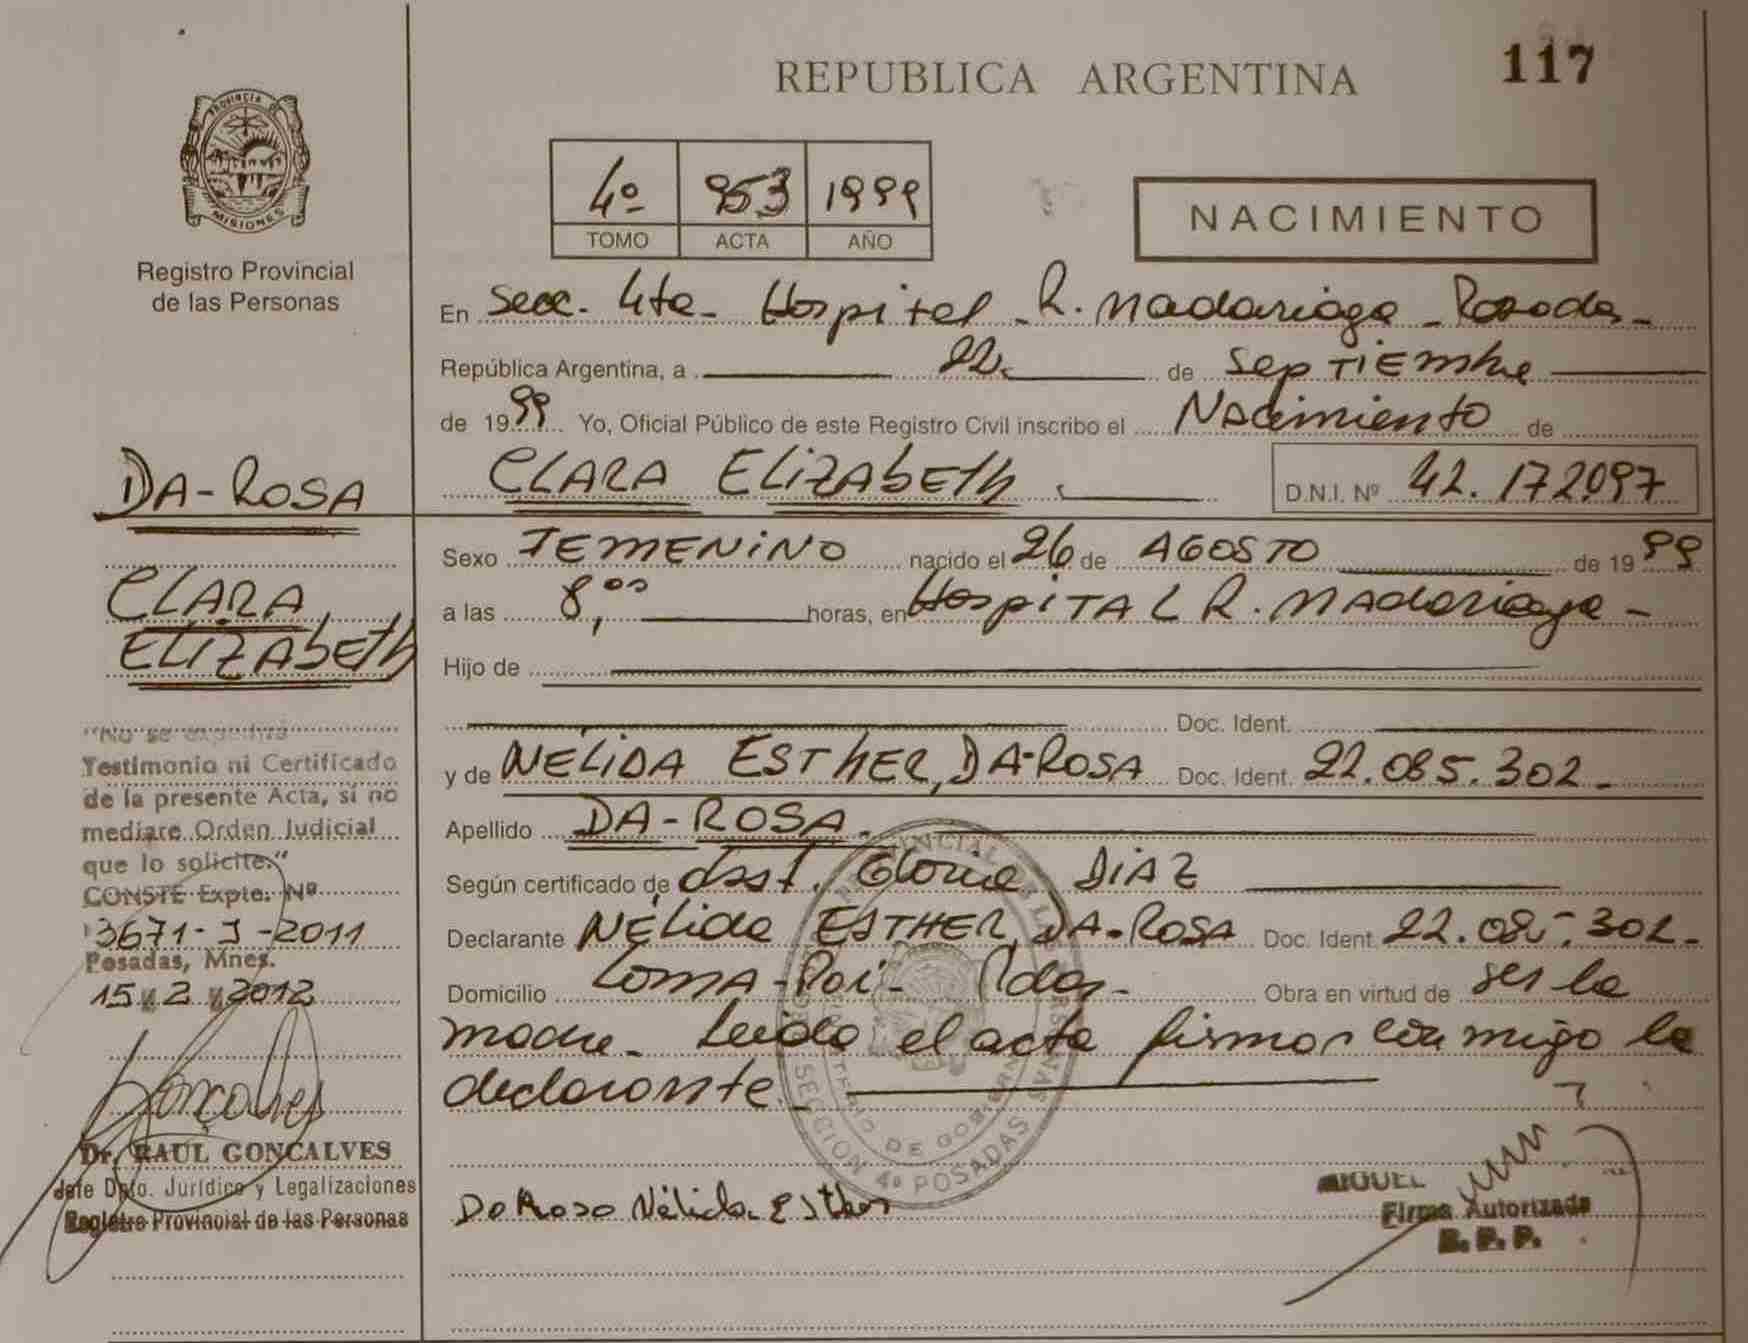 REPUBLICA ARGENTINA
117
PROVINCIA DE
MISIONES
Registro Provincial
de las Personas
4º 953 1999
TOMO ACTA AÑO
NACIMIENTO
En Secc. 4ta - Hospital R. Madariaga - Posadas -
República Argentina, a 22 de Septiembre
de 1999 Yo, Oficial Público de este Registro Civil inscribo el Nacimiento de
CLARA ELIZABETH D.N.I. Nº 42.172.097
Sexo FEMENINO nacido el 26 de AGOSTO de 1999
a las 8,00 horas, en HospITAL R. MADariaga -
Hijo de
Doc. Ident.
y de NELIDA ESTHER, DA-ROSA Doc. Ident. 22.085.302 -
Apellido DA-ROSA.
Según certificado de Obst. Gloria DIAZ
Declarante NELida ESTHER, DA-ROSA Doc. Ident 22.085.302 -
Domicilio LOMA-Poi- Pdas- Obra en virtud de ser la
madre - Leida el acta firman conmigo la
declarante -
Da Rosa Nélida Esther
MIGUEL
Firma Autorizada
R. P. P.
SECCION 4ª POSADAS
DA-ROSA
CLARA
ELIZABETH
"No se expedirá
Testimonio ni Certificado
de la presente Acta, si no
mediare Orden Judicial
que lo solicite."
CONSTE Expte. Nº
3671-J-2011
Posadas, Mnes.
15 2 2012
Goncalves
Dr. RAUL GONCALVES
Jefe Dpto. Jurídico y Legalizaciones
Registro Provincial de las Personas